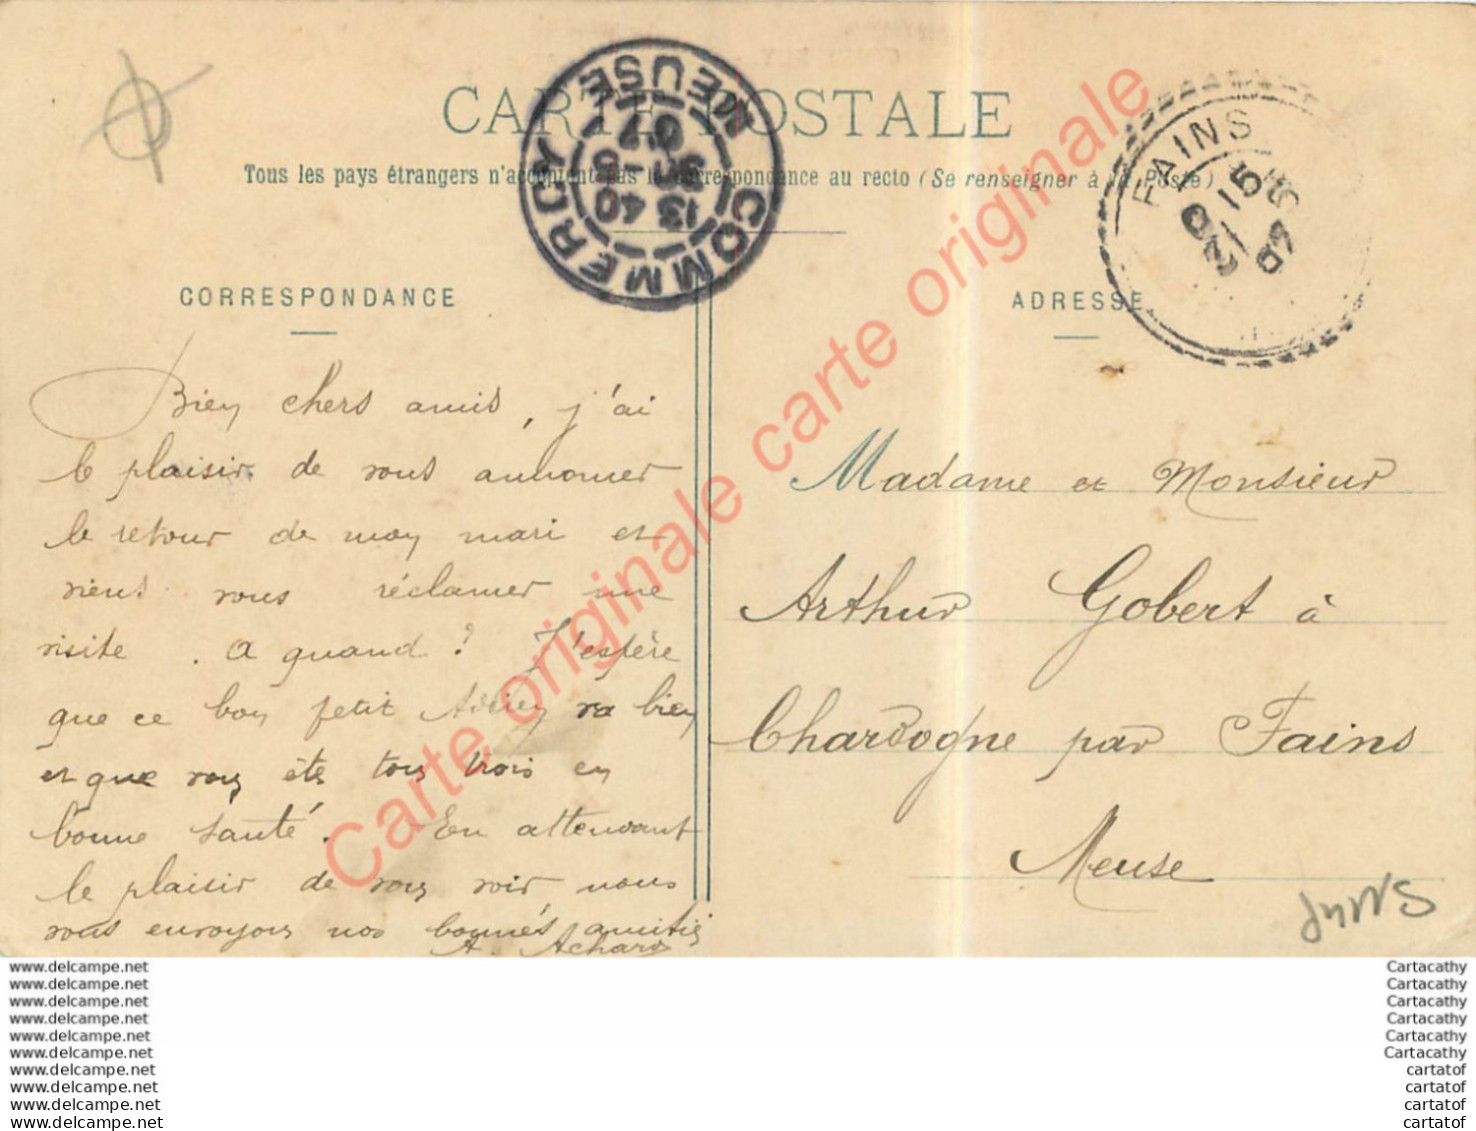 CARTE POSTALE
Tous les pays étrangers n'acceptent pas la correspondance au recto (Se renseigner à la Poste)
COMMERCY
MEUSE
13 40
3 - 5
07
FAINS
15 -5
07
CORRESPONDANCE
Bien chers amis, j'ai
le plaisir de vous annoncer
le retour de mon mari et
viens vous réclamer une
visite. A quand? J'espère
que ce bon petit va bien
et que vous êtes tous trois en
bonne santé. En attendant
le plaisir de vous voir nous
vous envoyons nos bonnes amitiés
A. Achard
ADRESSE
Madame et Monsieur
Arthur Gobert à
Chardogne par Fains
Meuse
Carte originale carte originale carte originale
www.delcampe.net
www.delcampe.net
www.delcampe.net
www.delcampe.net
www.delcampe.net
www.delcampe.net
www.delcampe.net
www.delcampe.net
www.delcampe.net
www.delcampe.net
Cartacathy
Cartacathy
Cartacathy
Cartacathy
Cartacathy
Cartacathy
cartatof
cartatof
cartatof
cartatof